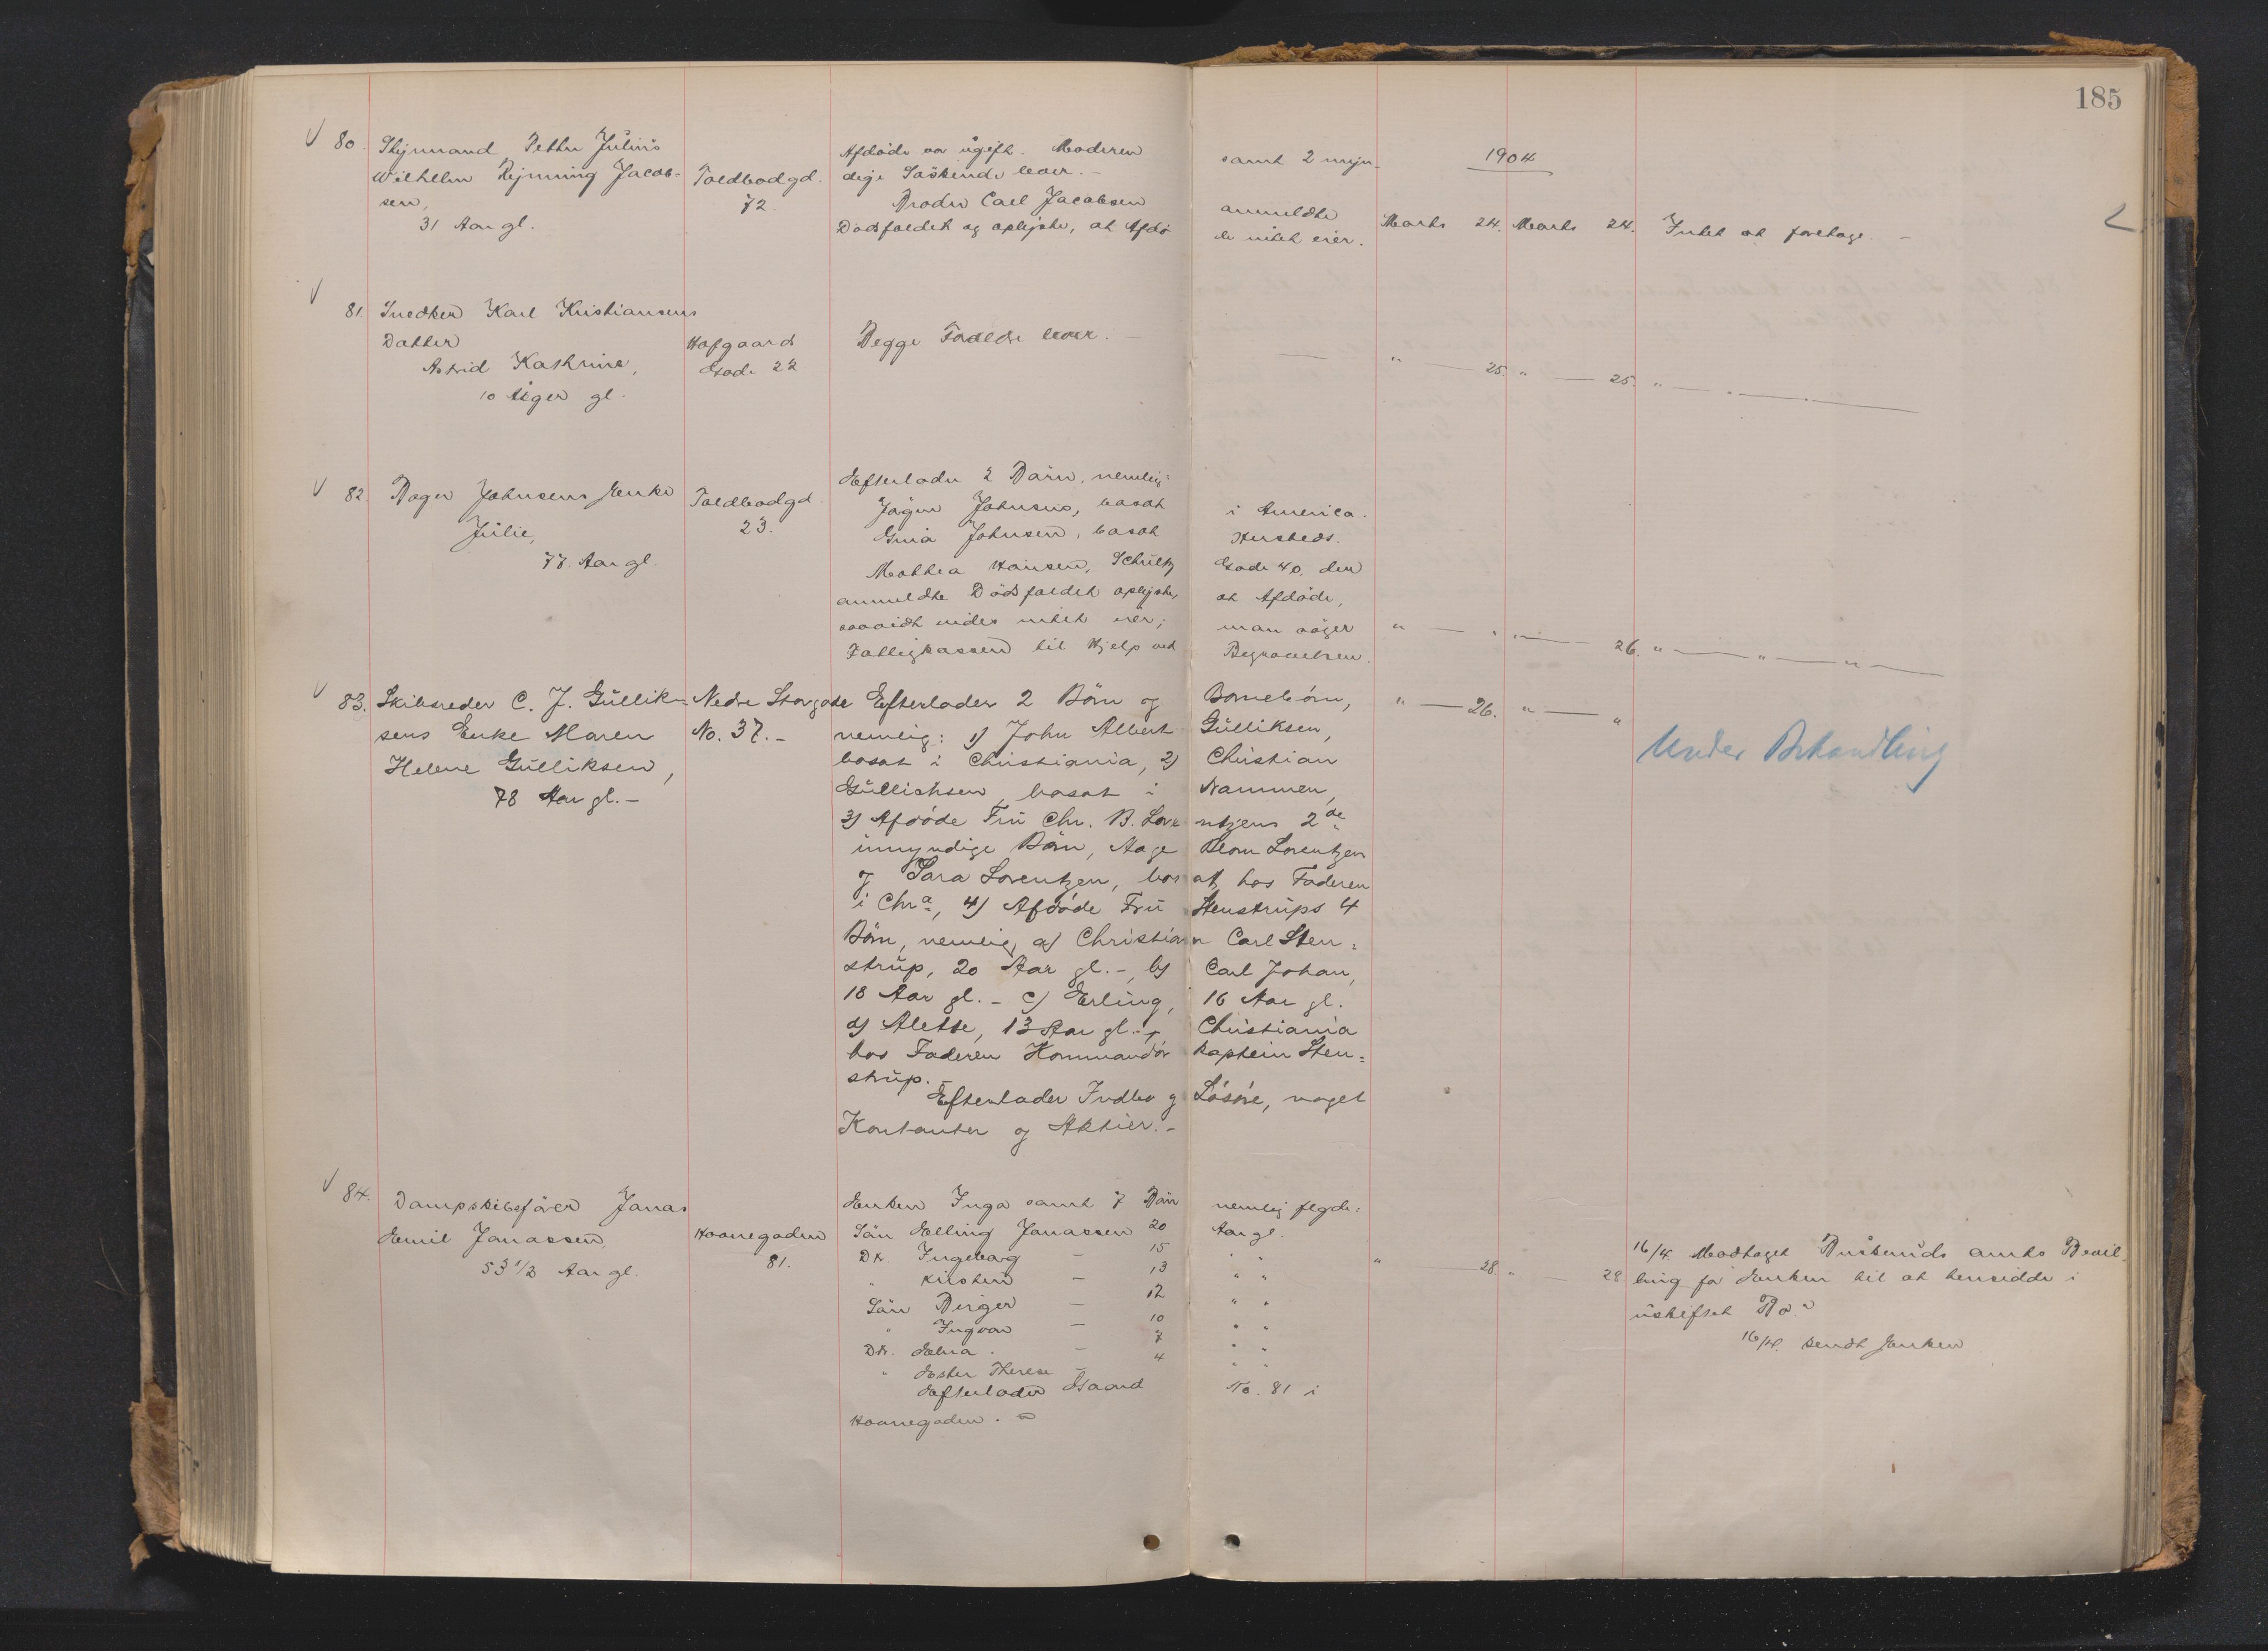 185
1904
80. Styrmand Petter Julius
Wilhelm Rejnning Jacob-
sen,
31 Aar gl.
Toldbodgd.
72.
Afdöde var ugift. Moderen samt 2 myn-
dige Söskende lever. -
Broder Carl Jacobsen anmeldte
Dödsfaldet og oplyste, at Afdö- de intet eier.
Marts 24. Marts 24. Intet at foretage. -
81. Snedker Karl Kristiansens
Datter
Astrid Kathrine,
10 Uger gl.
Hafgaard
Gade 22
Begge Forældre lever. -
" 25. " 25. " " "
82. Bager Johnsens Enke
Julie,
77 Aar gl.
Toldbodgd.
23.
Efterlader 2 Börn, nemlig:
Jörgen Johnsen, bosat i America.
Gina Johnsen, bosat hersteds.
Mathea Hansen, Schultz Gade 40, der
anmeldte Dödsfaldet oplyste, at Afdöde,
saavidt vides intet eier; man söger
Fattigkassen til Hjelp ved Begravelsen.
" " " 26. " " "
83. Skibsreder C. J. Gullik-
sens Enke Maren
Helene Gulliksen,
78 Aar gl. -
Nedre Storgade
No. 37. -
Efterlader 2 Börn og Börnebörn,
nemlig: 1) John Albert Gulliksen,
bosat i Christiania, 2) Christian
Gullichsen, bosat i Drammen,
3) Afdöde Fru Chr. B. Lorentzens 2de
umyndige Börn, Aage Blom Lorentzen
og Sara Lorentzen, bosat hos Faderen
i Chra, 4) Afdöde Fru Stenstrups 4
Börn, nemlig, a) Christian Carl Sten-
strup, 20 Aar gl. -, b) Carl Johan,
18 Aar gl. - c) Erling, 16 Aar gl.
d) Alette, 13 Aar gl. - Christiania
hos Faderen Kommandörkaptein Sten-
strup. -
Efterlader Indbo og Lösöre, noget
Kontanter og Aktier. -
" 26. " "
Under Behandling
84. Dampskibsförer Jonas
Emil Jonassen,
53 1/2 Aar gl.
Havnegaden
81.
Enken Inga samt 7 Börn nemlig flgde:
Sön Elling Jonassen 20 Aar gl.
Dt. Ingeborg - 15 " "
" Kirsten - 13 " "
Sön Birger - 12 " "
" Ingvar - 10 " "
Dt. Edna - 7 " "
" Ester Therese - 4 " "
Efterlader Gaard No. 81 i
Havnegaden. -
" 28. " 28.
16/4. Modtaget Buskeruds amts Bevil-
ling for Enken til at hensidde i
uskiftet Bo.
16/4. sendt Enken